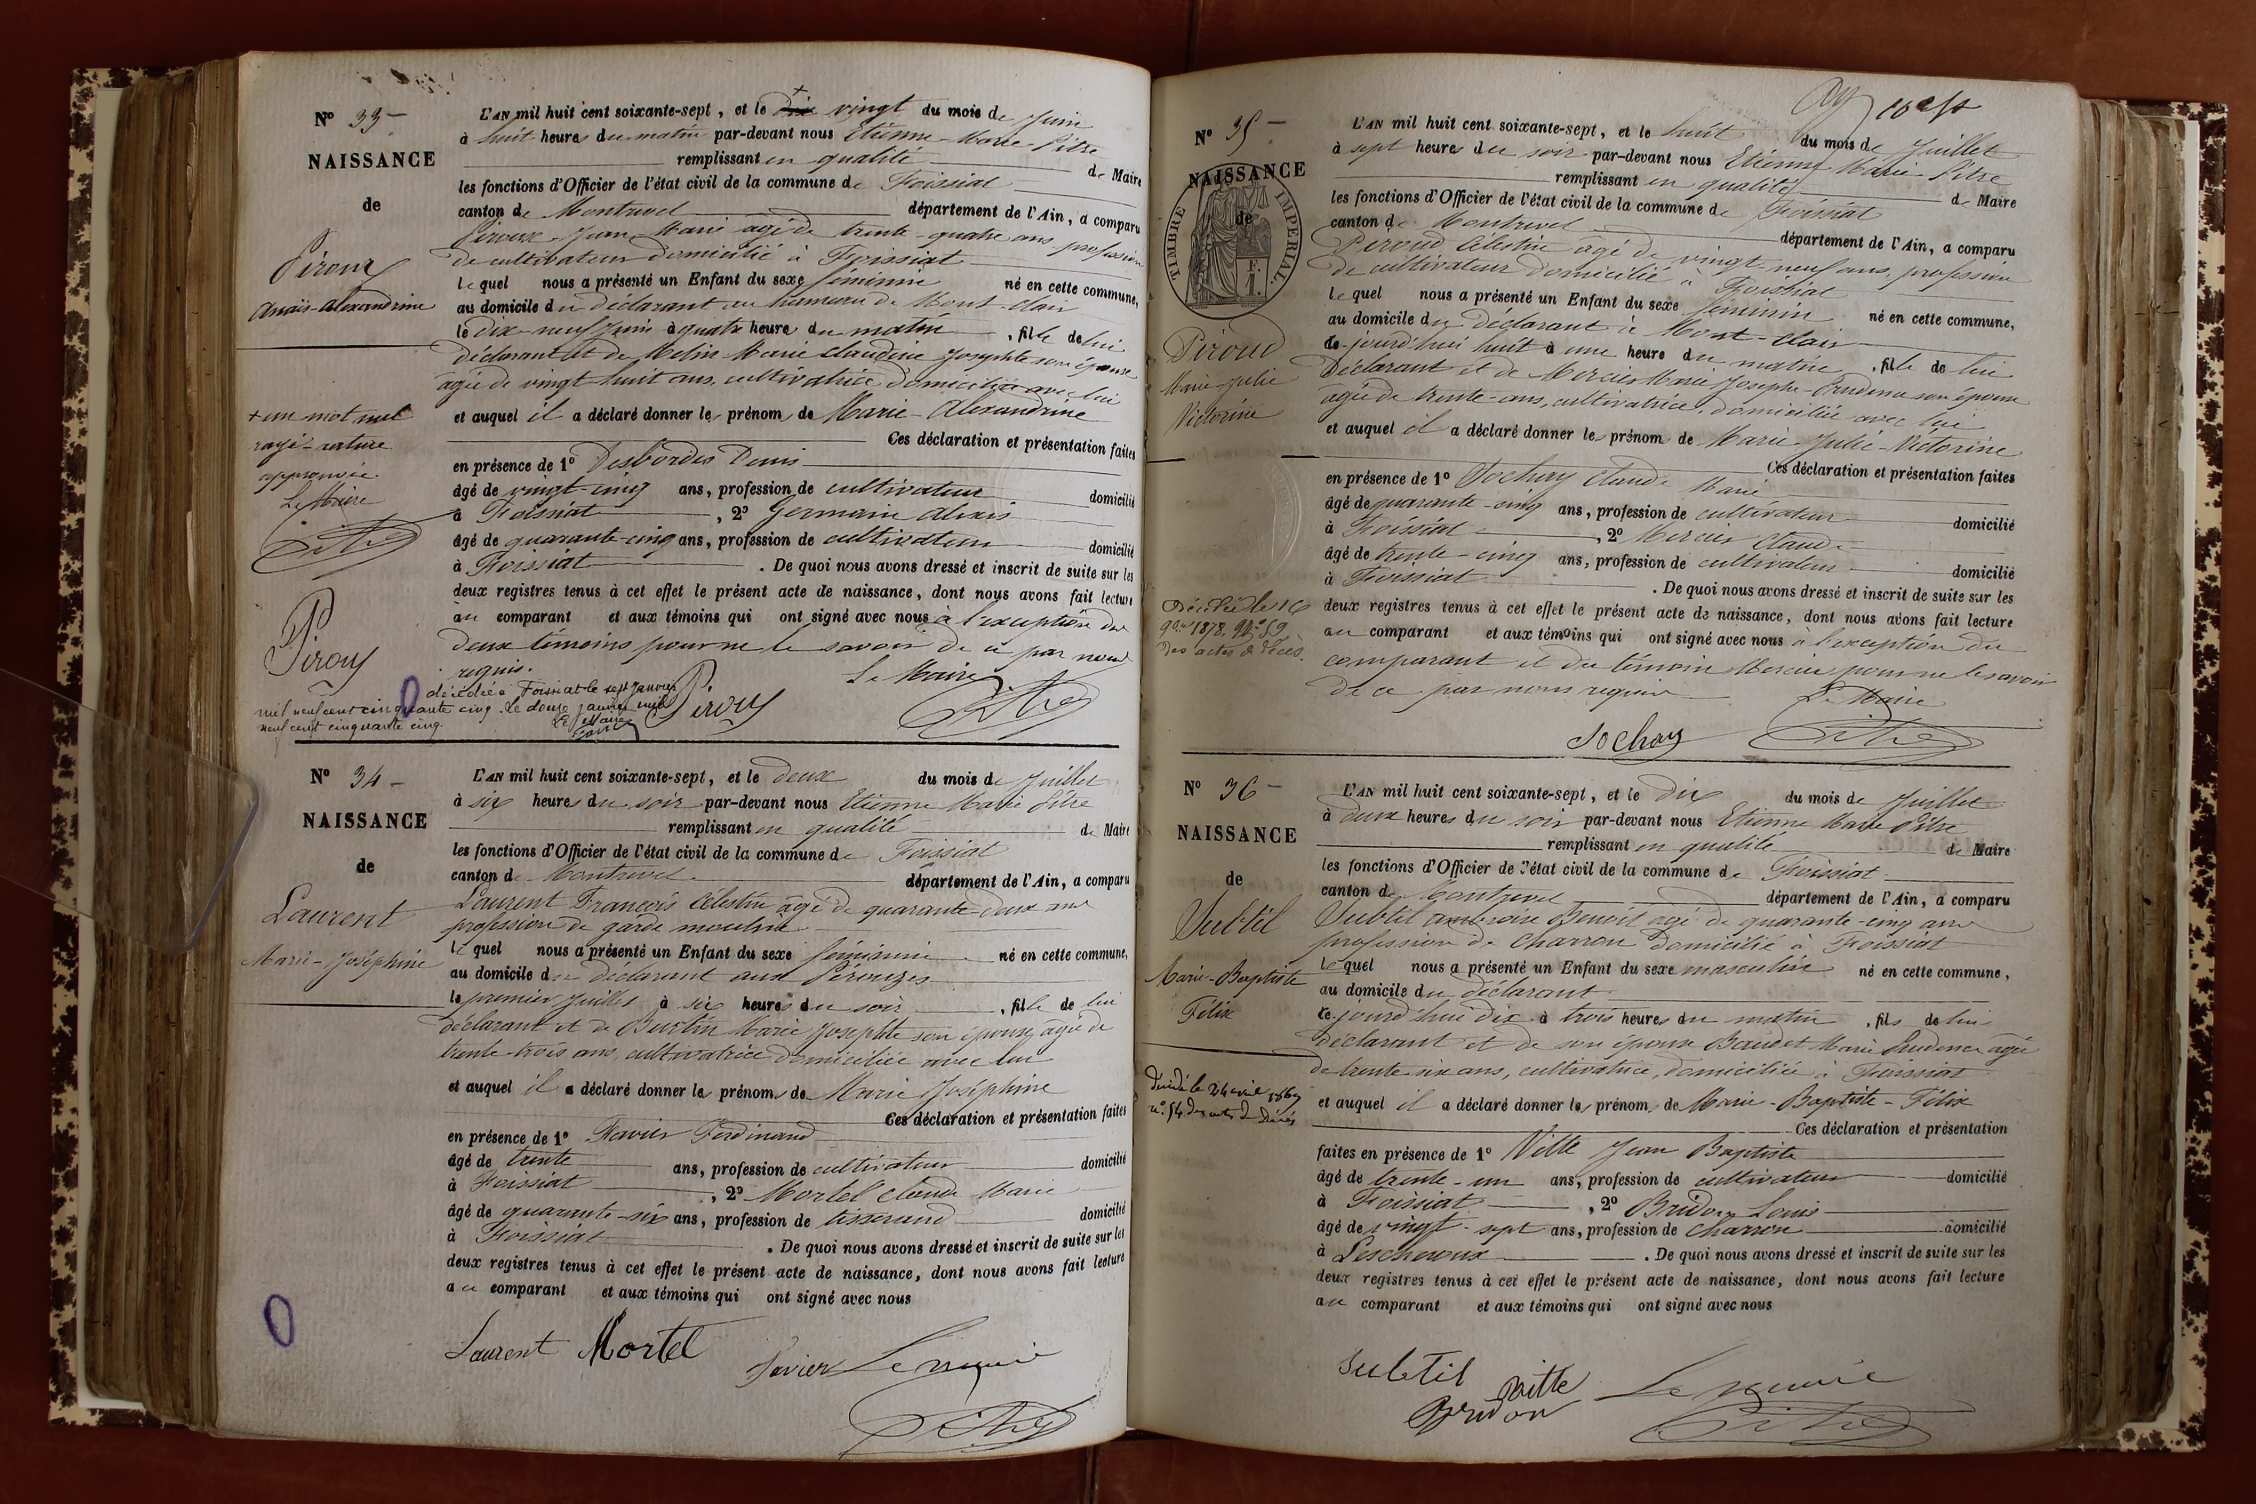 Nº 33 -
NAISSANCE
de
Piroux
Anaïs-Alexandrine
+ un mot nul
rayé - rature
approuvée.
Le Maire
Pitre
Pirouy
L'AN mil huit cent soixante-sept, et le dix + vingt du mois de Juin
à huit heures du matin par-devant nous Etienne-Marie Pitre
remplissant en qualité de Maire
les fonctions d'Officier de l'état civil de la commune de Foissiat
canton de Montrevel département de l'Ain, a comparu
Piroux Jean Marie agé de trente-quatre ans profession
de cultivateur domicilié à Foissiat
lequel nous a présenté un Enfant du sexe féminin né en cette commune,
au domicile du déclarant au hameau de Mont-Clair
le dix-neuf Juin à quatre heures du matin, fille de lui
déclarant et de Marie Claudine Josephte son épouse
agée de vingt huit ans, cultivatrice domiciliée avec lui
et auquel il a déclaré donner les prénoms de Marie-Alexandrine
Ces déclaration et présentation faites
en présence de 1º Desbordes Denis
âgé de vingt-cinq ans, profession de cultivateur domicilié
à Foissiat, 2º Germain Alexis
âgé de quarante-cinq ans, profession de cultivateur domicilié
à Foissiat. De quoi nous avons dressé et inscrit de suite sur les
deux registres tenus à cet effet le présent acte de naissance, dont nous avons fait lecture
au comparant et aux témoins qui ont signé avec nous à l'exception des
deux témoins pour ne le savoir de ce par nous
requis. Le Maire
décédée à Foissiat le sept janvier
mil neuf cent cinquante cinq. Le douze janvier mil
neuf cent cinquante cinq. Le Maire
Pirouy Pitre
Nº 34 -
NAISSANCE
de
Laurent
Marie-Joséphine
L'AN mil huit cent soixante-sept, et le deux du mois de Juillet
à six heures du soir par-devant nous Etienne Marie Pitre
remplissant en qualité de Maire
les fonctions d'Officier de l'état civil de la commune de Foissiat
canton de Montrevel département de l'Ain, a comparu
Laurent François Célestin agé de quarante-deux ans
profession de garde moulin
lequel nous a présenté un Enfant du sexe féminin né en cette commune,
au domicile du déclarant aux Pérouzes
le premier Juillet à six heures du soir, fille de lui
déclarant et de Burtin Marie Josephte son épouse, agée de
trente-trois ans, cultivatrice domiciliée avec lui
et auquel il a déclaré donner les prénoms de Marie Joséphine
Ces déclaration et présentation faites
en présence de 1º Favier Ferdinand
âgé de trente ans, profession de cultivateur domicilié
à Foissiat, 2º Mortel Claude Marie
âgé de quarante-six ans, profession de tisserand domicilié
à Foissiat. De quoi nous avons dressé et inscrit de suite sur les
deux registres tenus à cet effet le présent acte de naissance, dont nous avons fait lecture
au comparant et aux témoins qui ont signé avec nous
Laurent Mortel Favier Le maire
Pitre
Nº 35 -
NAISSANCE
de
TIMBRE IMPERIAL
Piroud
Marie Julie
Victorine
Décédée le 16
9bre 1878. Nº 59
des actes de décès.
L'AN mil huit cent soixante-sept, et le huit du mois de Juillet
à sept heures du soir par-devant nous Etienne Marie Pitre
remplissant en qualité de Maire
les fonctions d'Officier de l'état civil de la commune de Foissiat
canton de Montrevel département de l'Ain, a comparu
Piroud Célestin agé de vingt-neuf ans, profession
de cultivateur domicilié à Foissiat
lequel nous a présenté un Enfant du sexe féminin né en cette commune,
au domicile du déclarant à Mont-Clair
ce-jourd'hui huit à une heure du matin, fille de lui
déclarant et de Mercier Marie Josephe-Prudence son épouse
agée de trente-ans, cultivatrice, domiciliée avec lui
et auquel il a déclaré donner les prénom de Marie-Julie-Victorine
Ces déclaration et présentation faites
en présence de 1º Sochay Claude Marie
âgé de quarante-cinq ans, profession de cultivateur domicilié
à Foissiat, 2º Mercier Claude
âgé de trente-cinq ans, profession de cultivateur domicilié
à Foissiat. De quoi nous avons dressé et inscrit de suite sur les
deux registres tenus à cet effet le présent acte de naissance, dont nous avons fait lecture
au comparant et aux témoins qui ont signé avec nous à l'exception du
comparant et du témoin Mercier pour ne le savoir
de ce par nous requis
Le Maire
Sochay Pitre
Nº 36 -
NAISSANCE
de
Subtil
Marie-Baptiste
Félix
décédé le 24 avril 1869
nº 54 des actes de décès
L'AN mil huit cent soixante-sept, et le dix du mois de Juillet
à deux heures du soir par-devant nous Etienne Marie Pitre
remplissant en qualité de Maire
les fonctions d'Officier de l'état civil de la commune de Foissiat
canton de Montrevel département de l'Ain, a comparu
Subtil Ambroise Benoit agé de quarante-cinq ans
profession de charron domicilié à Foissiat
lequel nous a présenté un Enfant du sexe masculin né en cette commune,
au domicile du déclarant
ce-jourd'hui dix à trois heures du matin, fils de lui
déclarant et de son épouse Baudet Marie Prudence agée
de trente-six ans, cultivatrice, domiciliée à Foissiat
et auquel il a déclaré donner les prénoms de Marie-Baptiste-Félix
Ces déclaration et présentation
faites en présence de 1º Nitte Jean Baptiste
âgé de trente-un ans, profession de cultivateur domicilié
à Foissiat, 2º Bridon Louis
âgé de vingt-sept ans, profession de charron domicilié
à Lescheroux. De quoi nous avons dressé et inscrit de suite sur les
deux registres tenus à cet effet le présent acte de naissance, dont nous avons fait lecture
au comparant et aux témoins qui ont signé avec nous
Subtil Nitte Le maire
Bridon Pitre